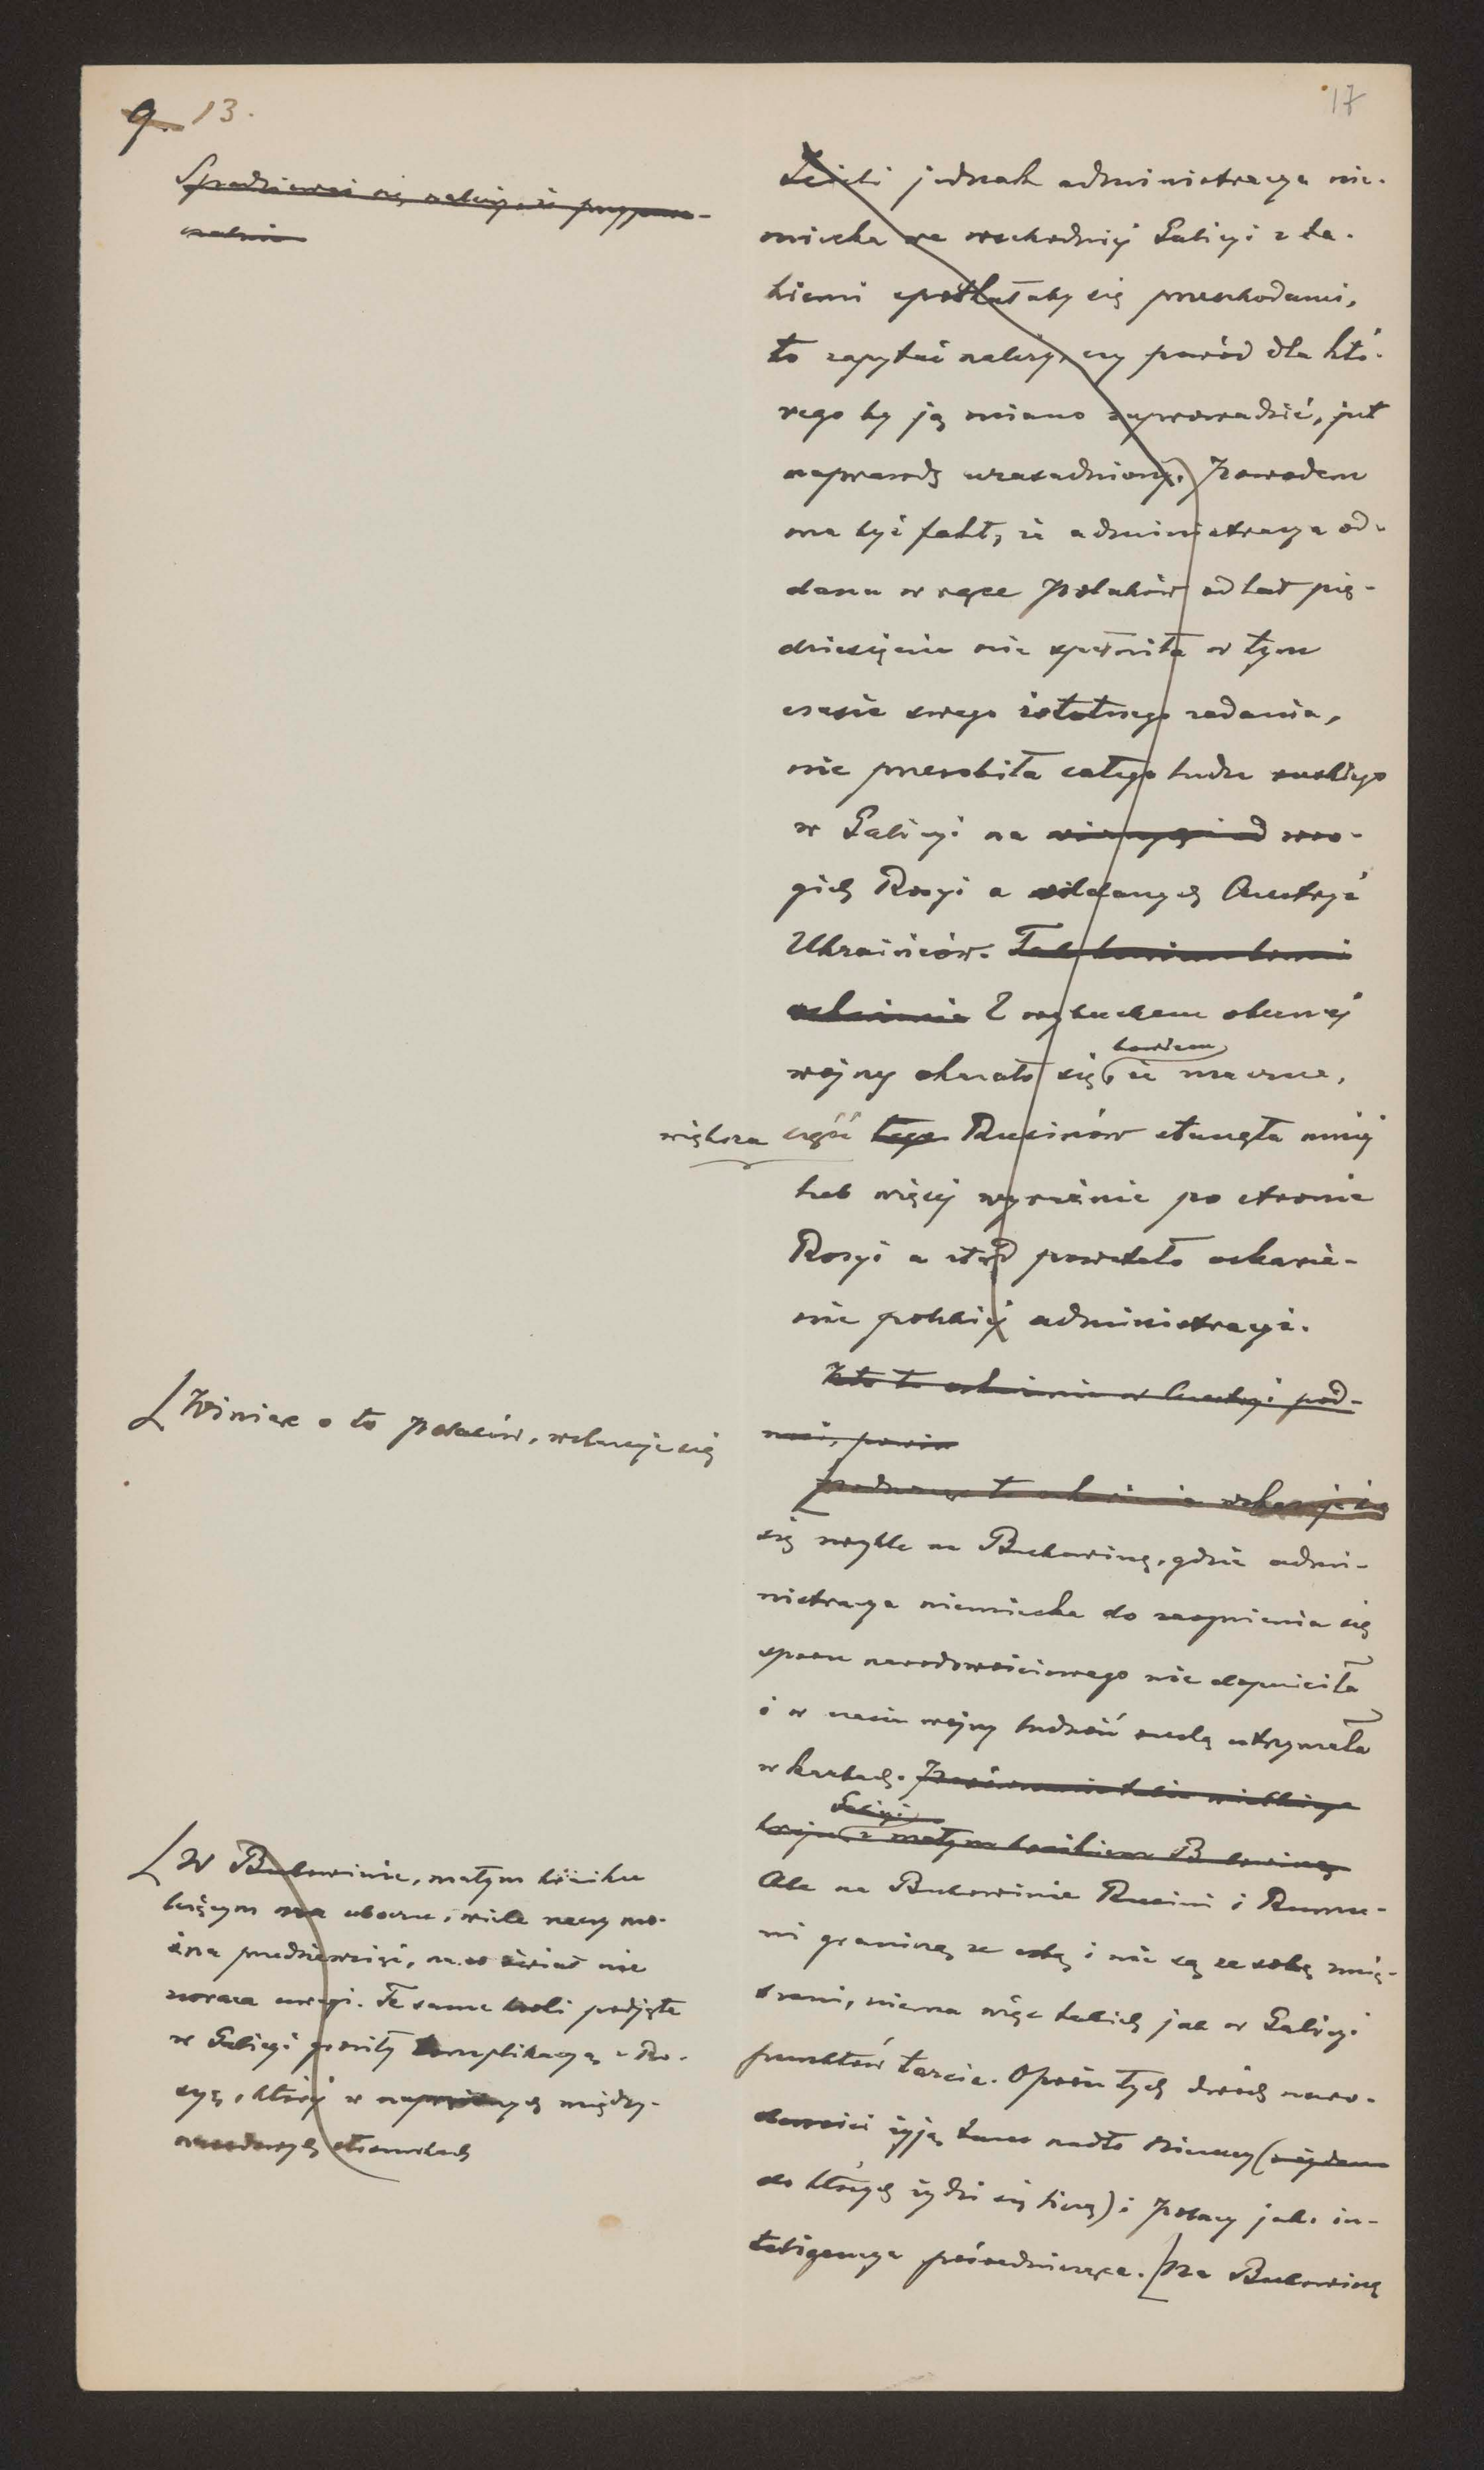 9. 13.
17
Spodziewać się należy, że przypusz-
czalnie
Jeżeli jednak administracya nie-
miecka we wschodniej Galicyi z ta-
kiemi spotkałaby się przeszkodami,
to zapytać należy, czy powód dla któ-
rego by ją miano zaprowadzić, jest
naprawdę uzasadniony. Powodem
ma być fakt, że administracya od-
dana w ręce Polaków od lat pię-
dziesięciu nie spełniła w tym
czasie swego istotnego zadania,
nie przerobiła całego ludu ruskiego
w Galicyi na wro-
gich Rosyi a oddanych Austryi
Ukraińców.
Z wybuchem obecnej
bowiem
wojny okazało się, że znaczna,
większa część tego Rusinów stanęła mniej
lub więcej wyraźnie po stronie
Rosyi a stąd powstało oskarże-
nie polskiej administracyi.
Kto to oskarżenie w Austryi pod-
nosi, powin
Winiąc o to Polaków, wskazuje się
Podnosząc to oskarżenie wskazuje się
się zwykle na Bukowinę, gdzie admi-
nistracya niemiecka do zaognienia się
sporu narodowościowego nie dopuściła
i w czasie wojny ludność ruską utrzymała
w karbach. Porównanie takie wielkiego
Galicyi
kraju z małym kraikiem Bukowiną
Ale na Bukowinie Rusini i Rumu-
ni graniczą ze sobą i nie są ze sobą zmię-
szani, niema więc takich jak w Galicyi
punktów tarcia. Oprócz tych dwóch naro-
dowości żyją tam nadto Niemcy (
do których żydzi się liczą) i Polacy jako in-
teligencya pośrednicząca. Na Bukowinę
W Bukowinie, małym kraiku
leżącym na uboczu, wiele rzeczy mo-
żna przedsięwziąć, na co świat nie
zwraca uwagi. Te same kroki podjęte
w Galicyi groziły komplikacyą z Ro-
syą, której w naprężonych między-
narodowych stosunkach